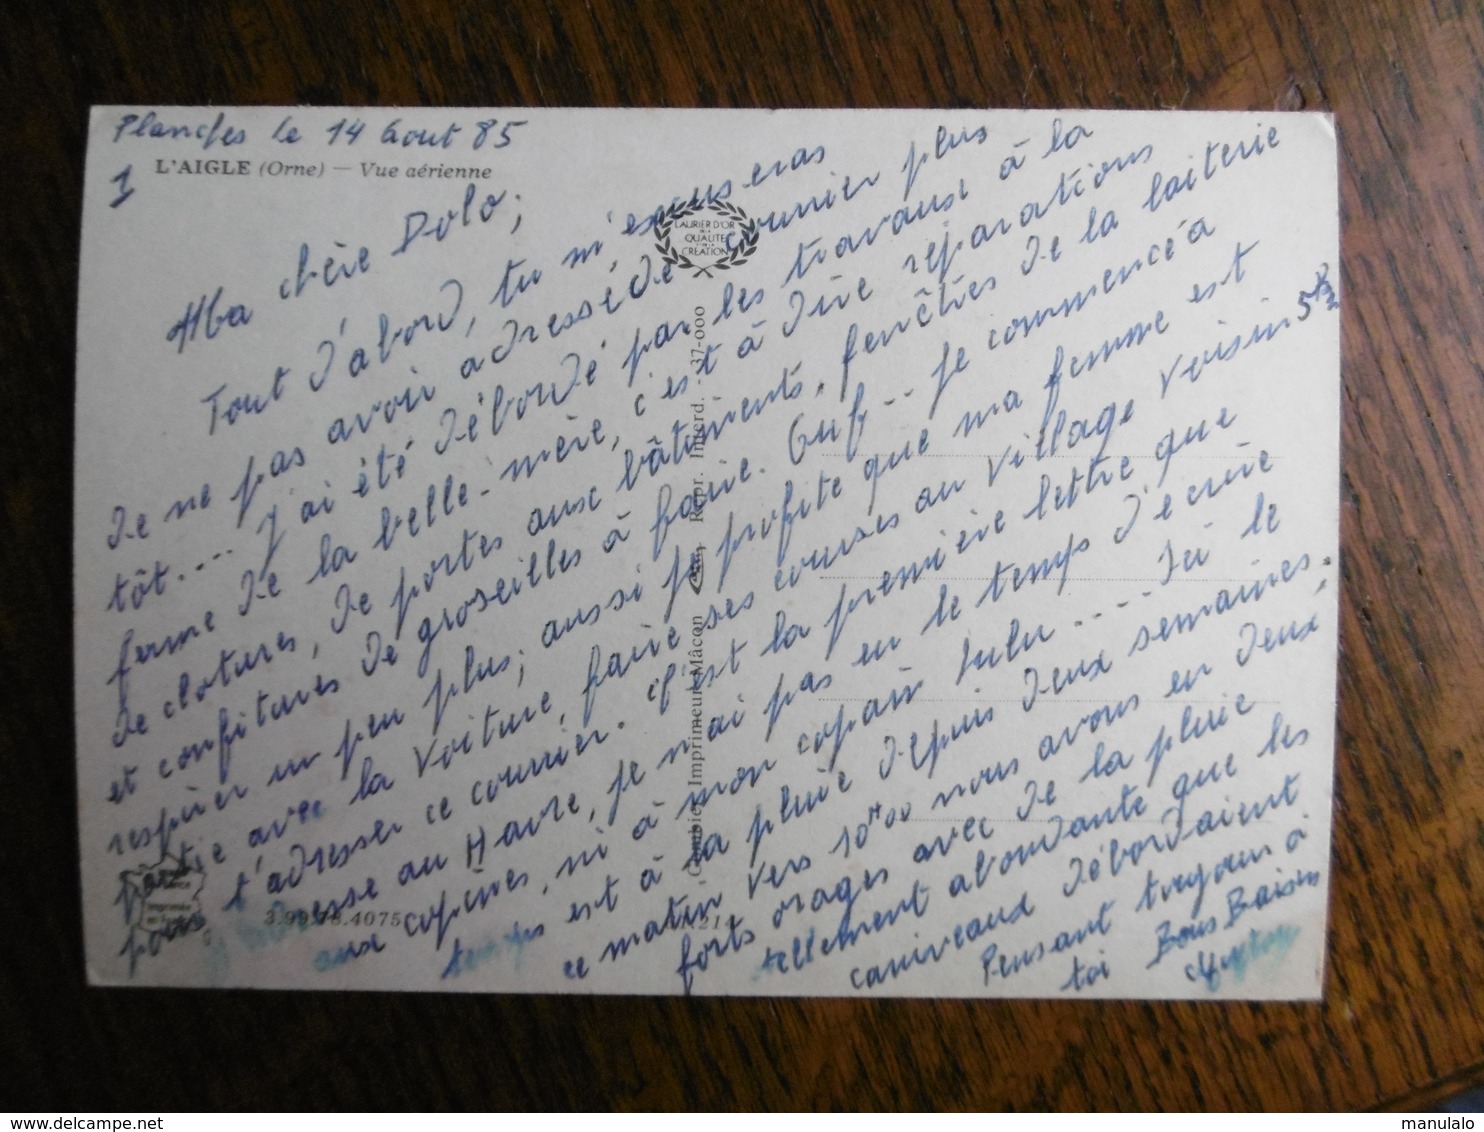 Planches le 14 Aout 85
I
L'AIGLE (Orne) — Vue aérienne
Ma chère Dolo;
Tout d'abord, tu m'excuseras
de ne pas avoir adressé de courrier plus
tôt.... j'ai été débordé par les travaux à la
ferme de la belle-mère, c'est à dire reparations
de clotures, de portes aux bâtiments, fenêtres de la laiterie
et confitures de groseilles à faire. Ouf... je commence à
respirer un peu plus; aussi je profite que ma femme est
partie avec la voiture, faire ses courses au village voisin
pour t'adresser ce courrier. C'est la première lettre que
j'adresse au Havre, je n'ai pas eu le temps d'écrire
aux copines, ni à mon copain Lulu.... Ici le
temps est à la pluie depuis deux semaines;
ce matin vers 10H00 nous avons eu deux
forts orages avec de la pluie
tellement abondante que les
caniveaux débordaient
Pensant toujours à
toi Bons Baisers
LAURIER D'OR
DE LA
QUALITÉ
CRÉATION
Combier Imprimeur Mâcon Repr. Interd. - 37-000
3.99.78.4075
Imprimée